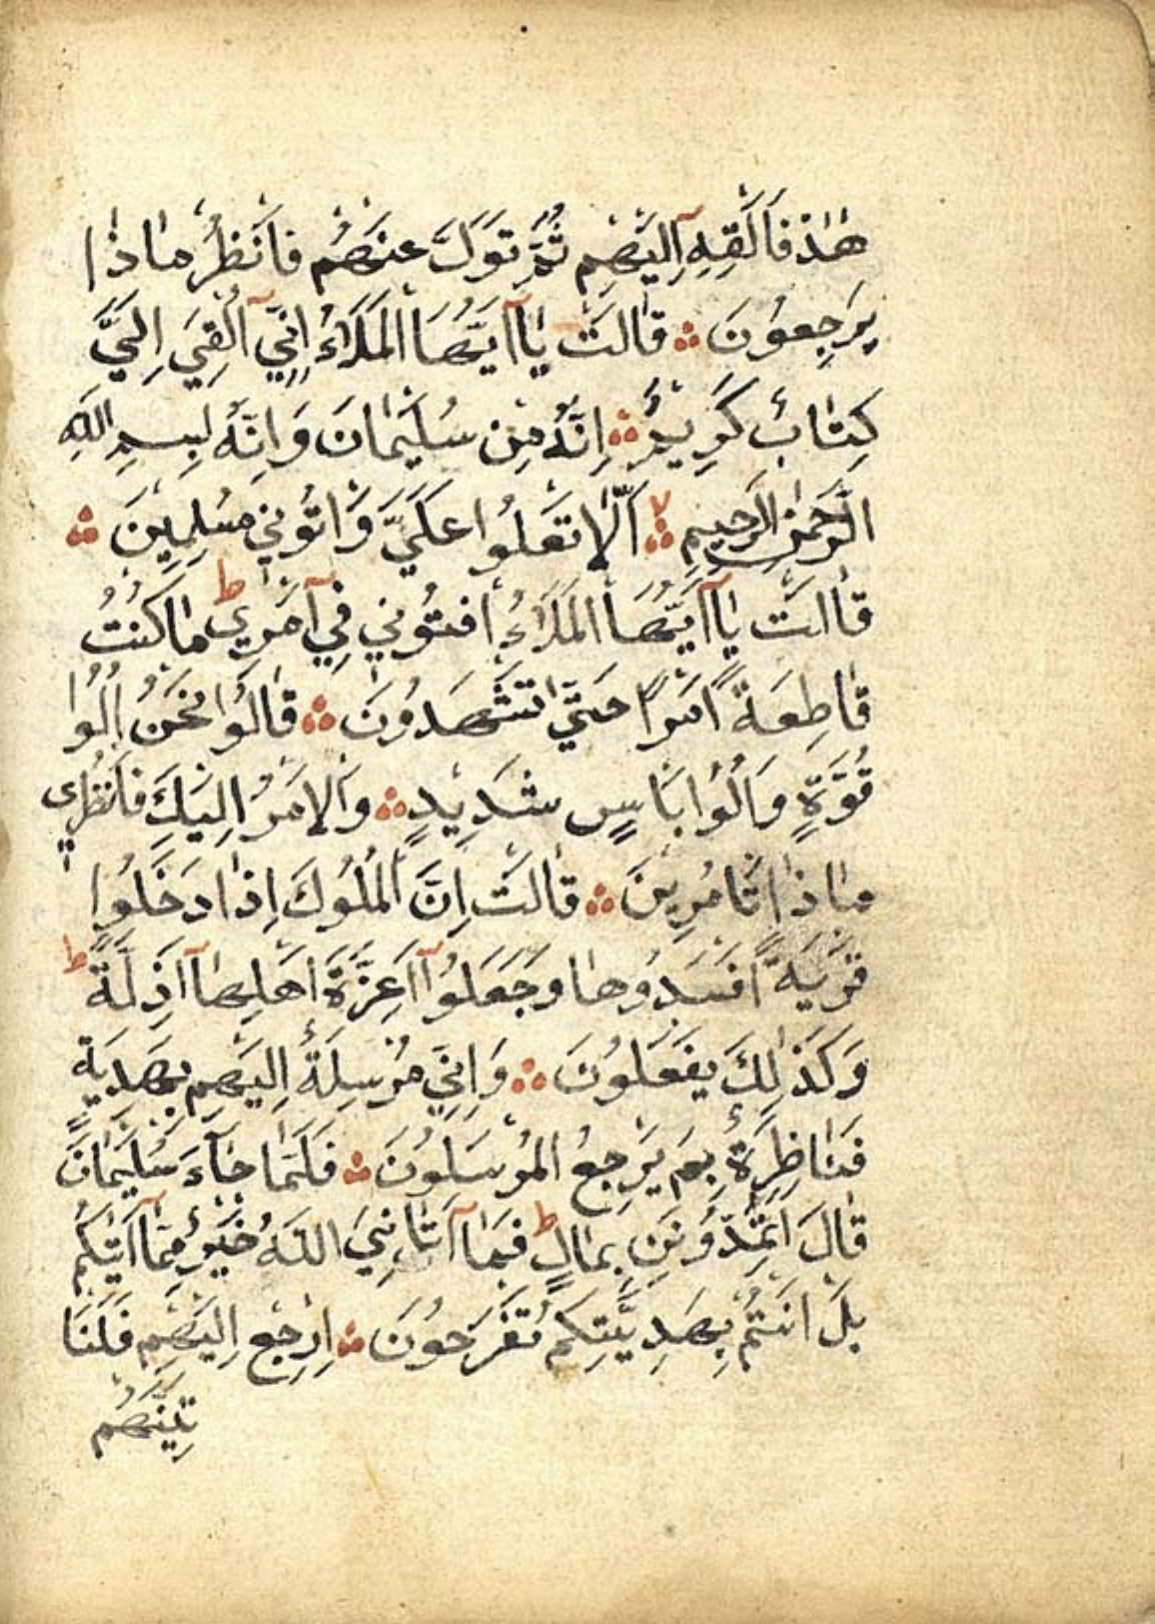 هٰذَا فَاَلْقِهِ اِلَيْهِمْ ثُمَّ تَوَلَّ عَنْهُمْ فَانْظُرْ مَاذَا
يَرْجِعُونَ ۞ قَالَتْ يَٓا اَيُّهَا الْمَلَؤُا اِنِّٓي اُلْقِيَ اِلَيَّ
كِتَابٌ كَرِيمٌ ۞ اِنَّهُ مِنْ سُلَيْمَانَ وَاِنَّهُ بِسْمِ اللّٰهِ
الرَّحْمٰنِ الرَّحِيمِ ۞ اَلَّا تَعْلُوا عَلَيَّ وَاْتُونِي مُسْلِمِينَ ۞
قَالَتْ يَٓا اَيُّهَا الْمَلَؤُا اَفْتُونِي فِٓي اَمْرِي ط مَا كُنْتُ
قَاطِعَةً اَمْرًا حَتّٰى تَشْهَدُونَ ۞ قَالُوا نَحْنُ اُلُوا
قُوَّةٍ وَاُلُوا بَاْسٍ شَدِيدٍ ۞ وَالْاَمْرُ اِلَيْكِ فَانْظُرِي
مَاذَا تَاْمُرِينَ ۞ قَالَتْ اِنَّ الْمُلُوكَ اِذَا دَخَلُوا
قَرْيَةً اَفْسَدُوهَا وَجَعَلُٓوا اَعِزَّةَ اَهْلِهَٓا اَذِلَّةً ط
وَكَذٰلِكَ يَفْعَلُونَ ۞ وَاِنِّي مُرْسِلَةٌ اِلَيْهِمْ بِهَدِيَّةٍ
فَنَاظِرَةٌ بِمَ يَرْجِعُ الْمُرْسَلُونَ ۞ فَلَمَّا جَٓاءَ سُلَيْمَانَ
قَالَ اَتُمِدُّونَنِ بِمَالٍ ط فَمَٓا اٰتَانِيَ اللّٰهُ خَيْرٌ مِمَّٓا اٰتٰيكُمْ
بَلْ اَنْتُمْ بِهَدِيَّتِكُمْ تَفْرَحُونَ ۞ اِرْجِعْ اِلَيْهِمْ فَلَنَا
تِيَنَّهُمْ